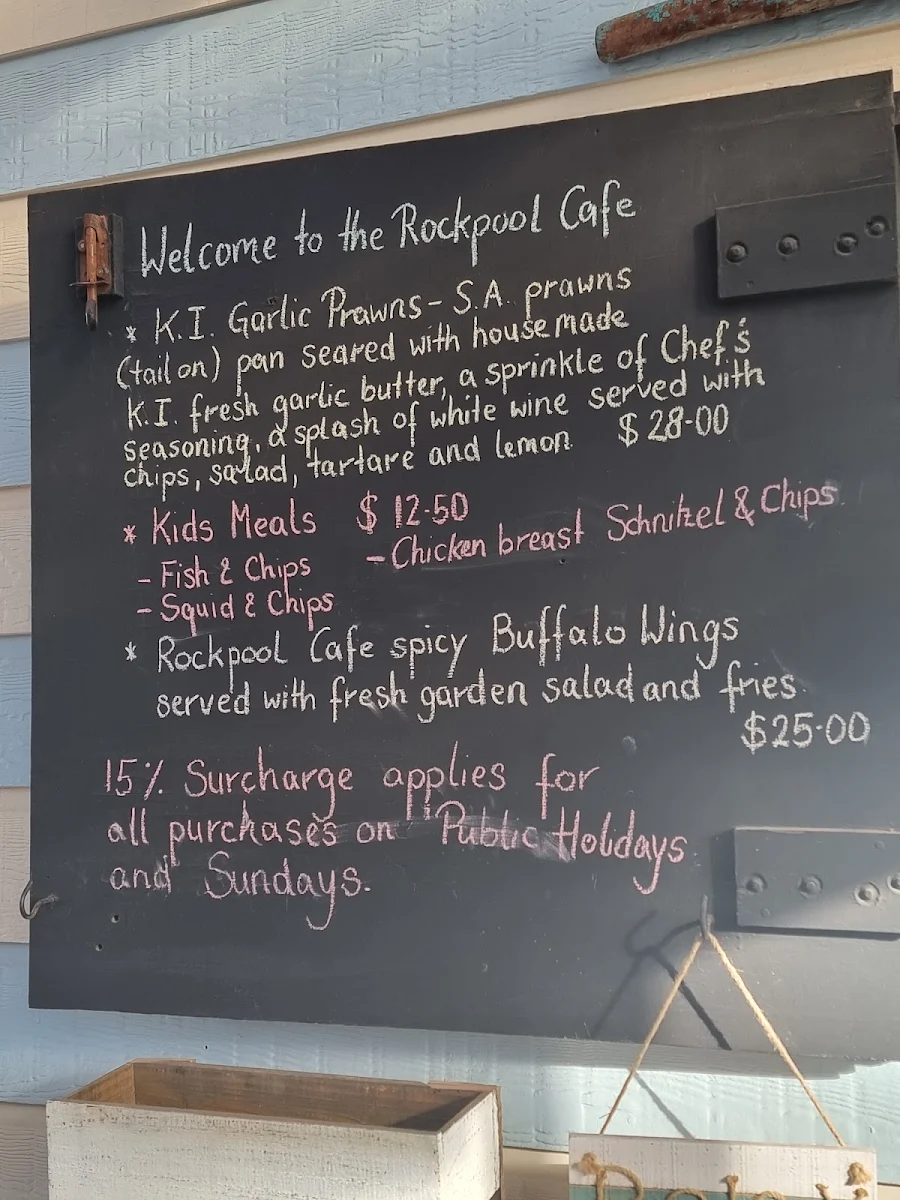 Welcome to the Rockpool Cafe
* K.I. Garlic Prawns - S.A. prawns
(tail on) pan seared with housemade
K.I. fresh garlic butter, a sprinkle of Chef's
seasoning, a splash of white wine served with
chips, salad, tartare and lemon $28.00
* Kids Meals $12.50
- Fish & Chips - Chicken breast Schnitzel & Chips
- Squid & Chips
* Rockpool Cafe spicy Buffalo Wings
served with fresh garden salad and fries
$25.00
15% Surcharge applies for
all purchases on "Public Holidays
and Sundays.